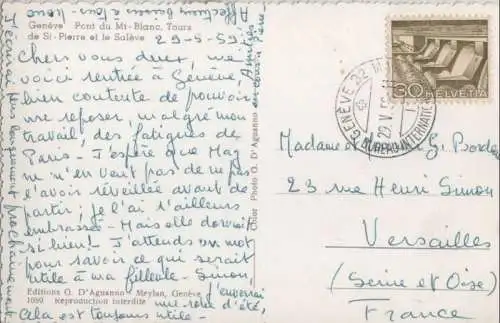 Genève Pont du Mt-Blanc, Tours
de St-Pierre et le Salève
29-5-59
Chers vous deux, me
voici rentrée à Genève,
bien contente de pouvoir
me reposer, malgré mon
travail, des fatigues de
Paris - J'espère que Mag
ne m'en veut pas de ne pas
l'avoir réveillée avant de
partir; je l'ai d'ailleurs
embrassé - Mais elle dormait
si bien! J'attends un mot
pour savoir ce qui serait
utile à ma filleule - Sinon,
j'enverrai
une robe d'été,
cela est toujours utile -
J'écrirai plus longuement prochainement
Affectueux baisers à tous
Editions O. D'Aguanno - Meylan, Genève
1089 Reproduction interdite
Cher Photo O. D'Aguanno
30 HELVETIA
GENÈVE 22
29.V.59
Madame et G. Borde
23 rue Henri Simon
Versailles
(Seine et Oise)
France